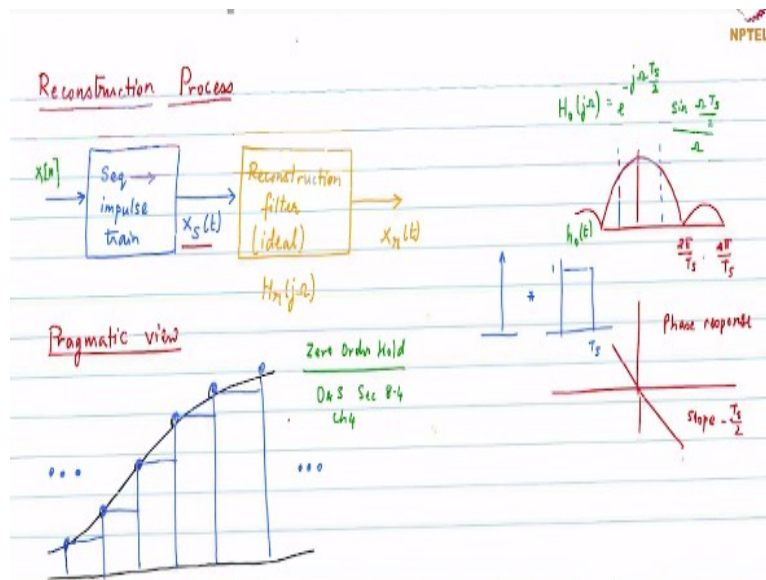 NPTEL
Reconstruction Process
x[n]
Seq →
impulse
train
x_s(t)
Reconstruction
filter
(ideal)
H_r(jΩ)
x_r(t)
H_0(jΩ) = e^{-jΩT_s/2} sin ΩT_s/2 / Ω
h_0(t)
2π/T_s
4π/T_s
1
*
T_s
Phase response
Slope - T_s/2
Pragmatic view
Zero Order Hold
O&S Sec 8.4
Ch4
...
...